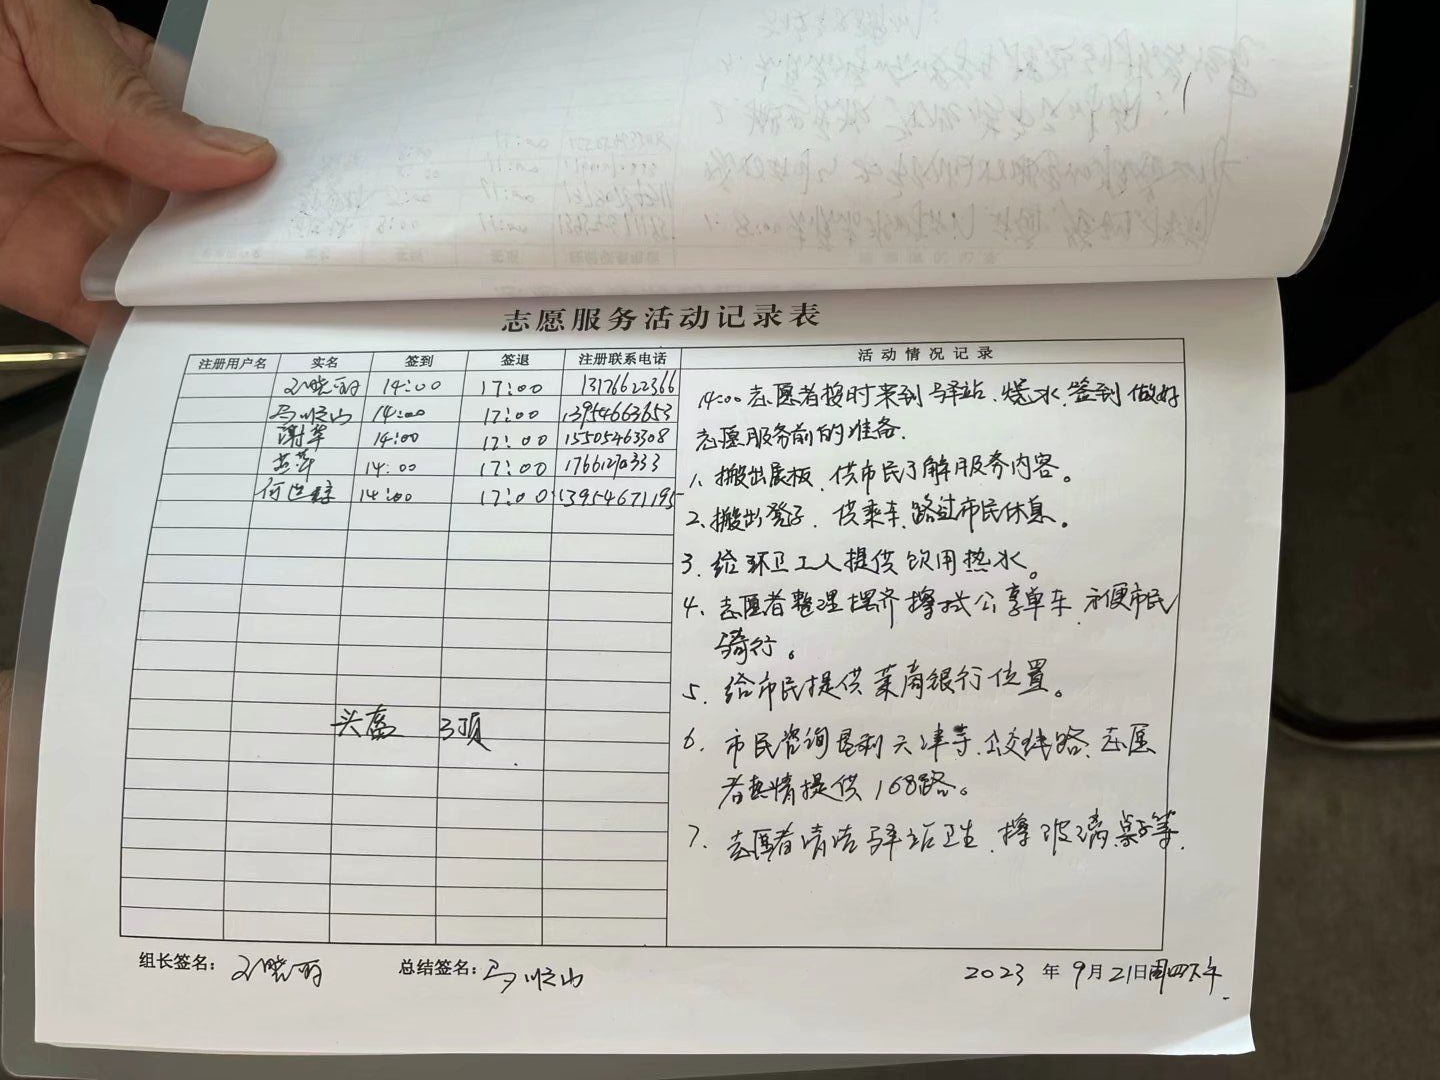 志愿服务活动记录表
注册用户名 实名 签到 签退 注册联系电话 活动情况记录
14:00 17:00 13176622366
马顺山 14:00 17:00 13954663653
谢华 14:00 17:00 15505463308
14:00 17:00
14:00 17:00 13954671195
头盔 3顶
14:00志愿者按时来到驿站、烧水、签到做好
志愿服务前的准备.
1、搬出展板、供市民了解服务内容。
2、搬出凳子、供乘车、路过市民休息。
3、给环卫工人提供饮用热水。
4、志愿者整理摆齐擦拭公享单车、方便市民
骑行。
5、给市民提供莱商银行位置。
6、市民咨询垦利天津等、公交线路、志愿
者热情提供168路。
7、志愿者清洁驿站卫生、擦玻璃桌子等.
组长签名:
总结签名:马顺山
2023年9月21日周四下午